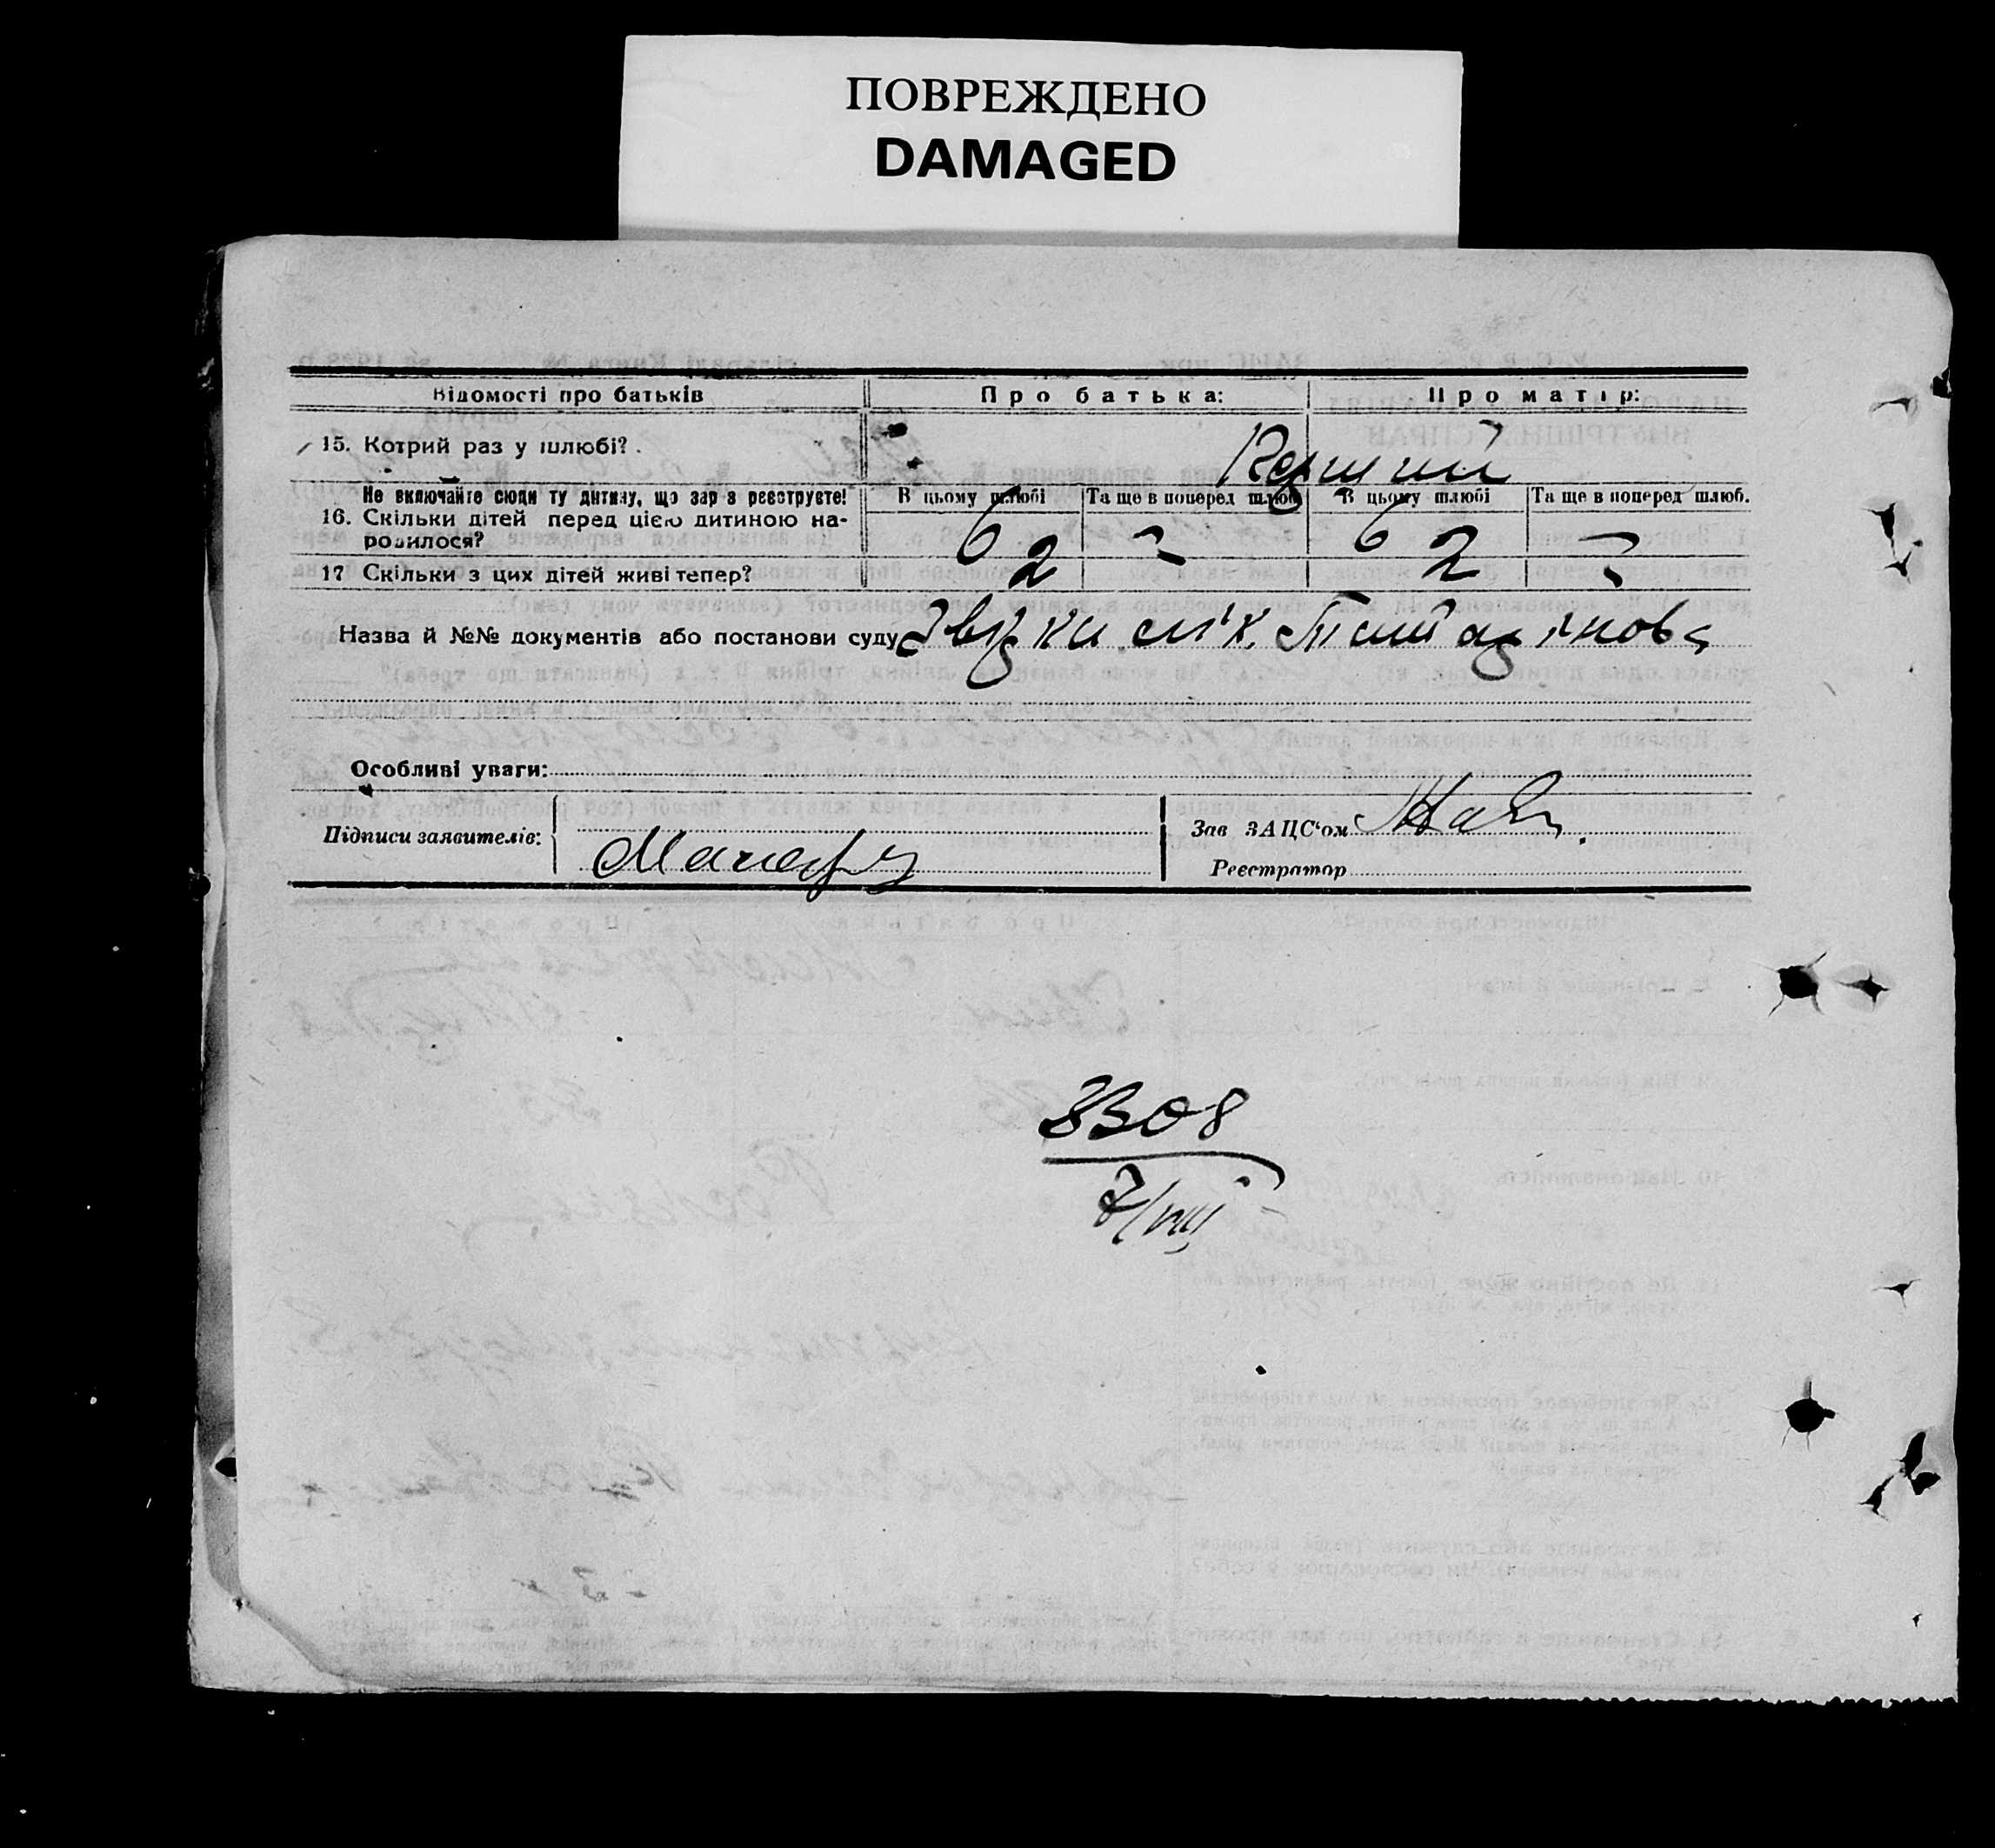 ПОВРЕЖДЕНО
DAMAGED
Відомості про батьків Про батька: Про матір:
15. Котрий раз у шлюбі? Перший
Не включайте сюди ту дитину, що зараз реєструєте! В цьому шлюбі Та ще в поперед шлюб В цьому шлюбі Та ще в поперед шлюб.
16. Скільки дітей перед цією дитиною на-
родилося? 6 - 6 -
17 Скільки з цих дітей живі тепер? 2 - 2 -
Назва й №№ документів або постанови суду
Особливі уваги:
Підписи заявителів:
Зав ЗАЦС'ом
Реєстратор
3308
7/VIII